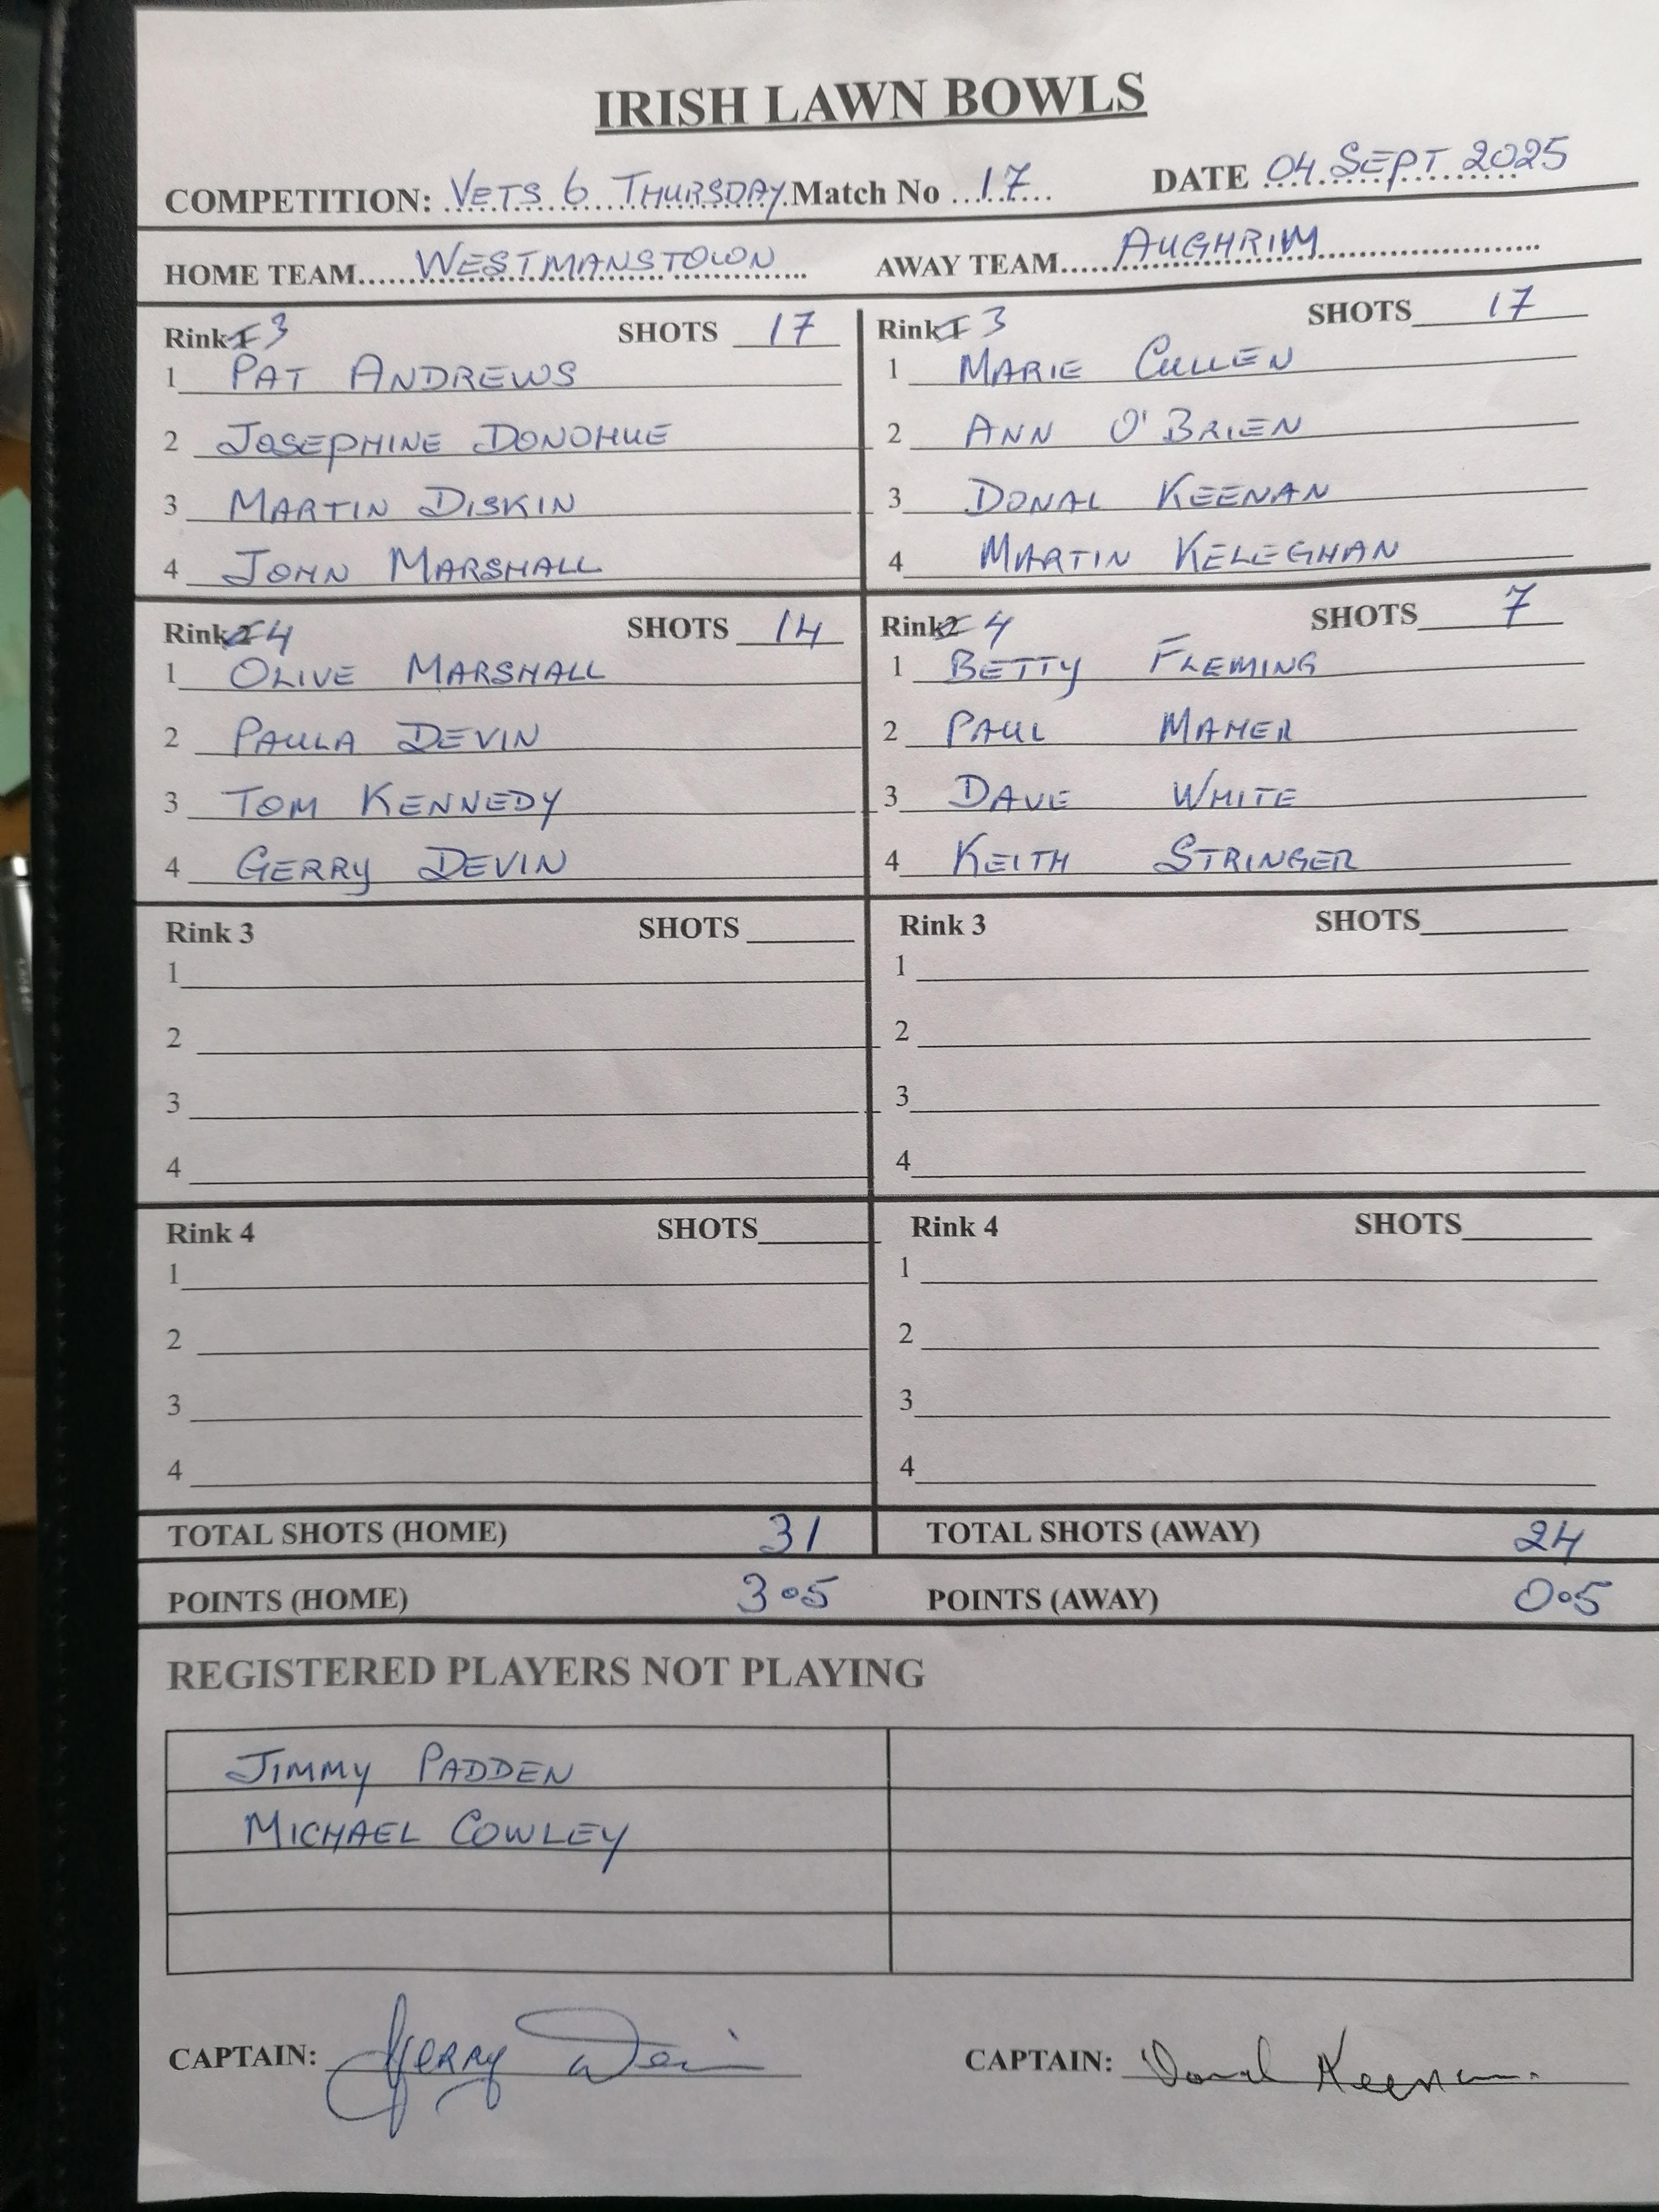 IRISH LAWN BOWLS
COMPETITION: VETS 6 THURSDAY Match No 17 DATE 04 SEPT 2025
HOME TEAM WESTMANSTOWN AWAY TEAM AUGHRIM
Rink 3 SHOTS 17 Rink 3 SHOTS 17
1 PAT ANDREWS 1 MARIE CULLEN
2 JOSEPHINE DONOHUE 2 ANN O'BRIEN
3 MARTIN DISKIN 3 DONAL KEENAN
4 JOHN MARSHALL 4 MARTIN KELEGHAN
Rink 4 SHOTS 14 Rink 4 SHOTS 7
1 OLIVE MARSHALL 1 BETTY FLEMING
2 PAULA DEVIN 2 PAUL MAHER
3 TOM KENNEDY 3 DAVE WHITE
4 GERRY DEVIN 4 KEITH STRINGER
Rink 3 SHOTS Rink 3 SHOTS
1 1
2 2
3 3
4 4
Rink 4 SHOTS Rink 4 SHOTS
1 1
2 2
3 3
4 4
TOTAL SHOTS (HOME) 31 TOTAL SHOTS (AWAY) 24
POINTS (HOME) 3.5 POINTS (AWAY) 0.5
REGISTERED PLAYERS NOT PLAYING
JIMMY PADDEN
MICHAEL COWLEY
CAPTAIN: Gerry Devin CAPTAIN: Donal Keenan.